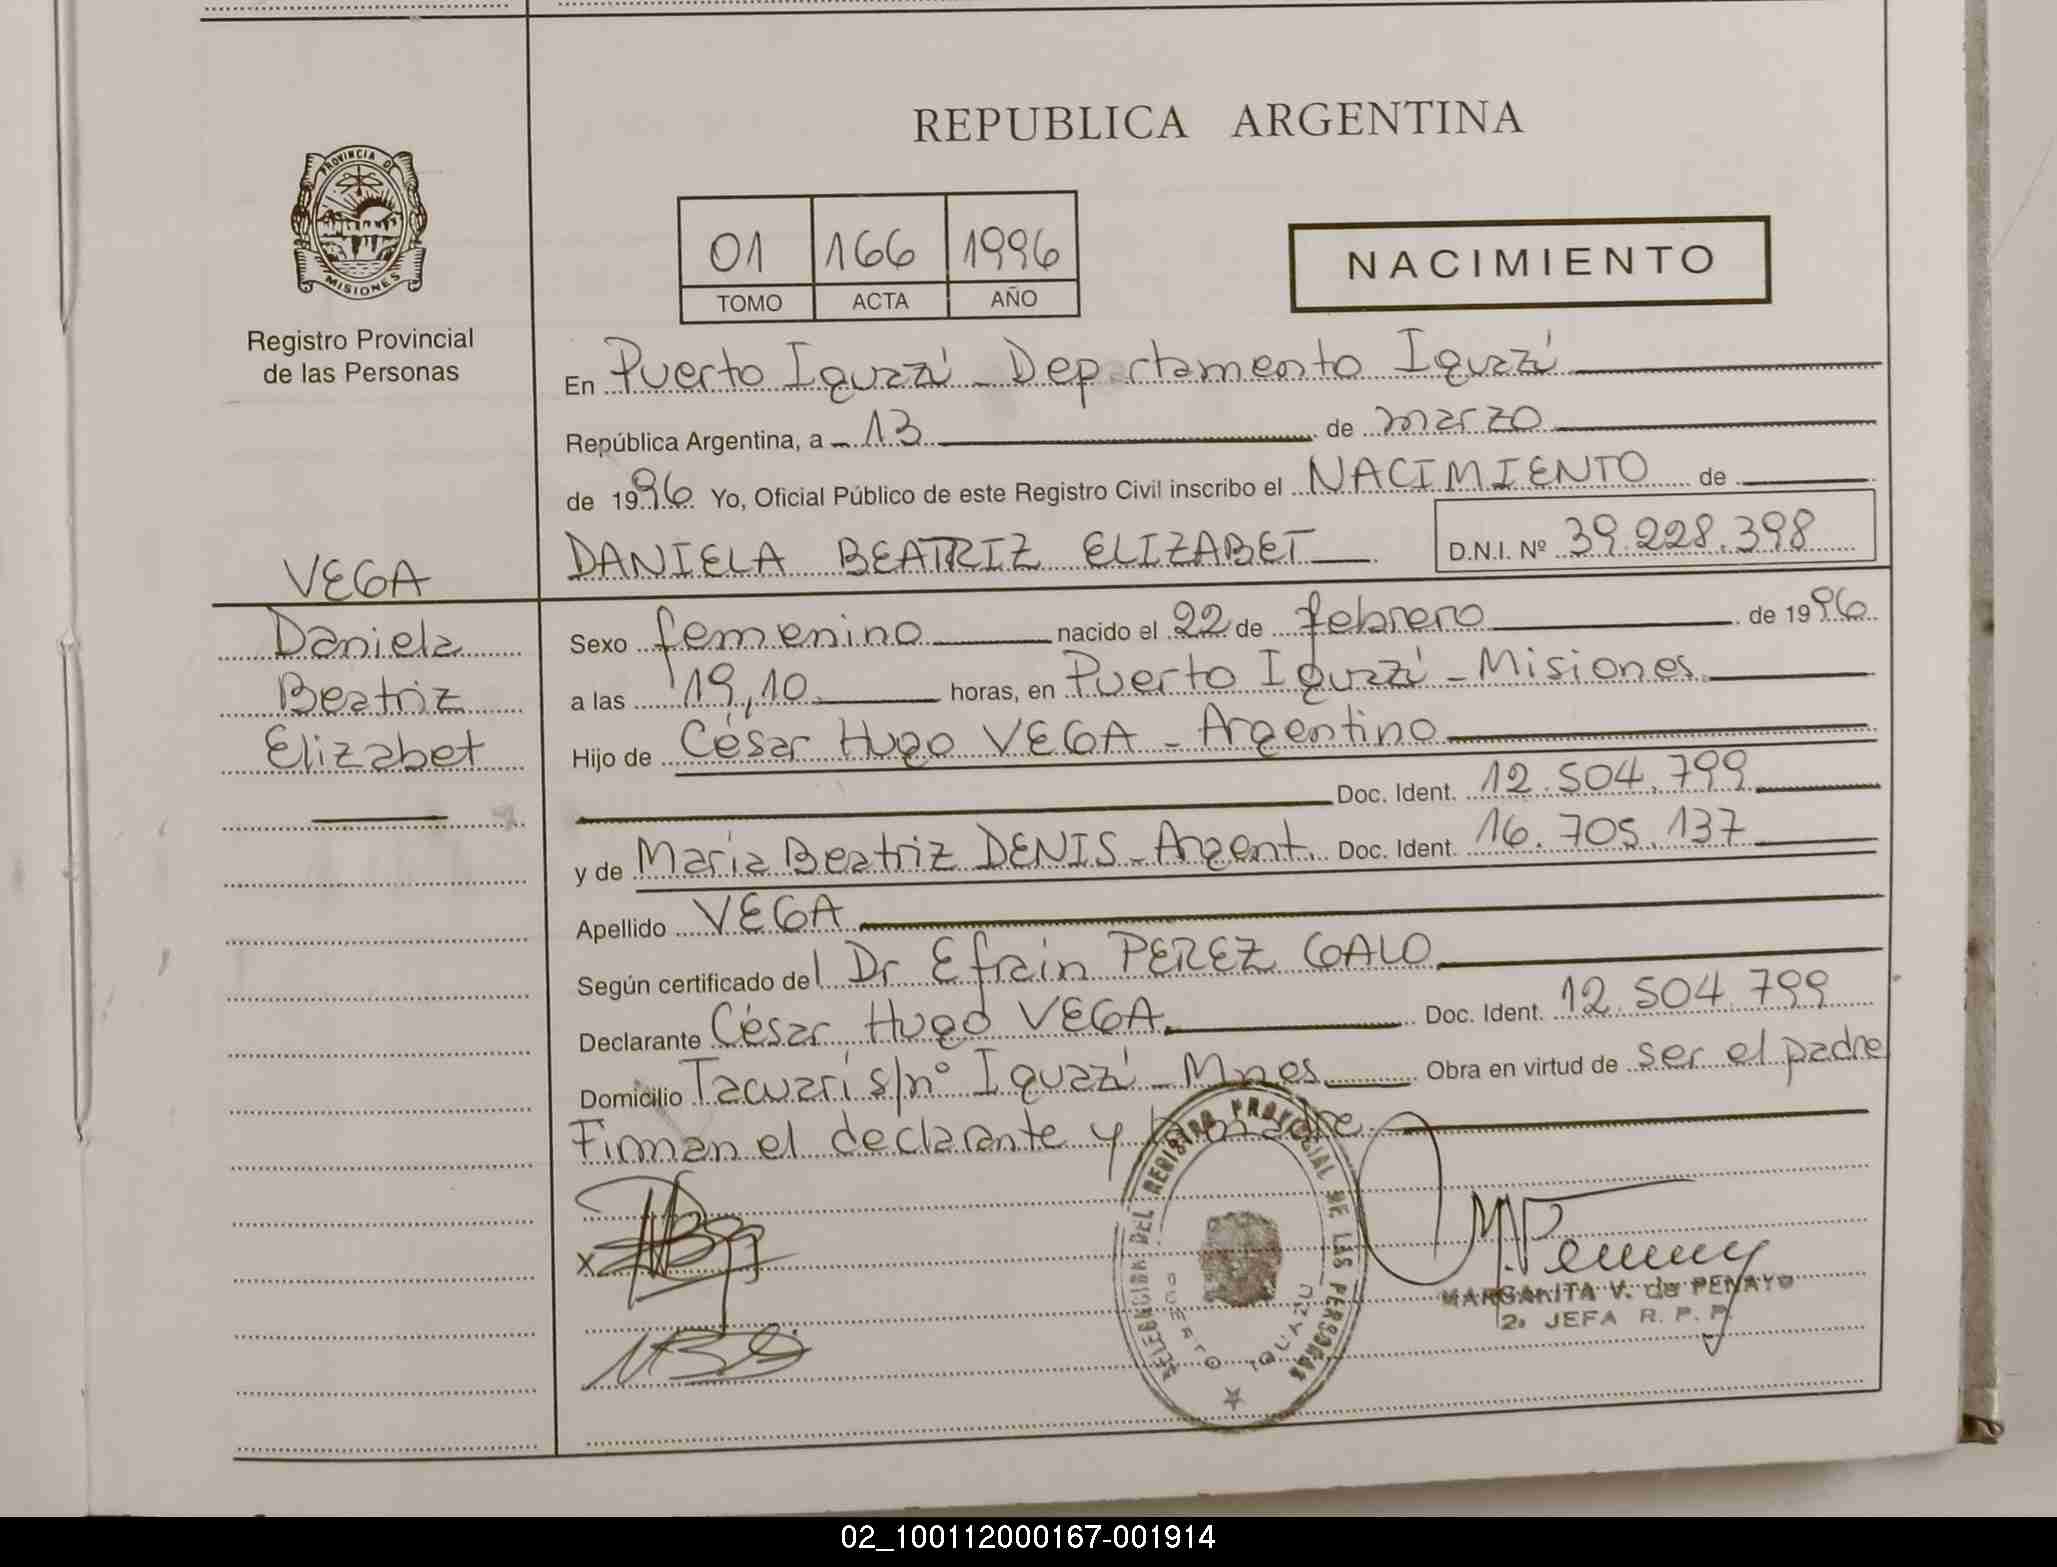 REPUBLICA ARGENTINA
PROVINCIA DE
MISIONES
Registro Provincial
de las Personas
01 166 1996
TOMO ACTA AÑO
NACIMIENTO
En Puerto Iguazú - Departamento Iguazú
República Argentina, a - 13 de marzo
de 1996 Yo, Oficial Público de este Registro Civil inscribo el NACIMIENTO de
DANIELA BEATRIZ ELIZABET D.N.I. Nº 39.228.398
VEGA
Daniela
Beatriz
Elizabet
Sexo femenino nacido el 22 de febrero de 1996
a las 19,10 horas, en Puerto Iguazú - Misiones
Hijo de César Hugo VEGA - Argentino
Doc. Ident. 12.504.799
y de María Beatriz DENIS - Argent. Doc. Ident. 16.705.137
Apellido VEGA
Según certificado del Dr Efrain PEREZ GALO
Declarante César Hugo VEGA Doc. Ident. 12.504.799
Domicilio Tacuarí s/nº Iguazú - Mnes Obra en virtud de ser el padre
Firman el declarante y la madre
X
DELEGACION DEL REGISTRO PROVINCIAL DE LAS PERSONAS
PUERTO IGUAZU
MARGARITA V. de PENAYO
2a JEFA R. P. P.
02_100112000167-001914